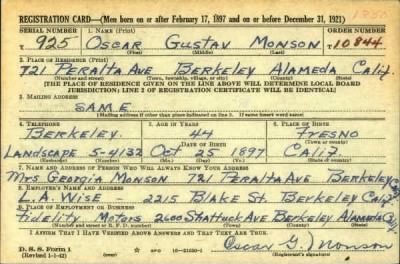 REGISTRATION CARD—(Men born on or after February 17, 1897 and on or before December 31, 1921)
SERIAL NUMBER 1. NAME (Print) ORDER NUMBER
T 925 OSCAR GUSTAV MONSON T10844
(First) (Middle) (Last)
2. PLACE OF RESIDENCE (Print)
721 PERALTA AVE BERKELEY ALAMEDA CALIF.
(Number and street) (Town, township, village, or city) (County) (State)
[THE PLACE OF RESIDENCE GIVEN ON THE LINE ABOVE WILL DETERMINE LOCAL BOARD
JURISDICTION; LINE 2 OF REGISTRATION CERTIFICATE WILL BE IDENTICAL]
3. MAILING ADDRESS
SAME
[Mailing address if other than place indicated on line 2. If same insert word same]
4. TELEPHONE 5. AGE IN YEARS 6. PLACE OF BIRTH
BERKELEY. 44 FRESNO
DATE OF BIRTH
LANDSCAPE 5-4132 Oct 25 1897 CALIF
(Exchange) (Number) (Mo.) (Day) (Yr.) (State or country)
7. NAME AND ADDRESS OF PERSON WHO WILL ALWAYS KNOW YOUR ADDRESS
MRS GEORGIA MONSON 721 PERALTA AVE BERKELEY
8. EMPLOYER'S NAME AND ADDRESS
L.A. WISE - 2215 BLAKE ST. BERKELEY CALIF
9. PLACE OF EMPLOYMENT OR BUSINESS
Fidelity MOTORS 2600 SHATTUCK AVE BERKELEY ALAMEDA
(Number and street or R. F. D. number) (Town) (County) (State)
I AFFIRM THAT I HAVE VERIFIED ABOVE ANSWERS AND THAT THEY ARE TRUE.
D. S. S. Form 1
(Revised 1-1-42) GPO 16-21630-1 Oscar G. Monson
(Registrant's signature)